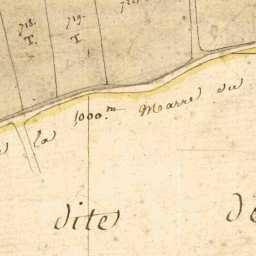 718.
T.
719.
T.
la 1000.m Marre du
dite